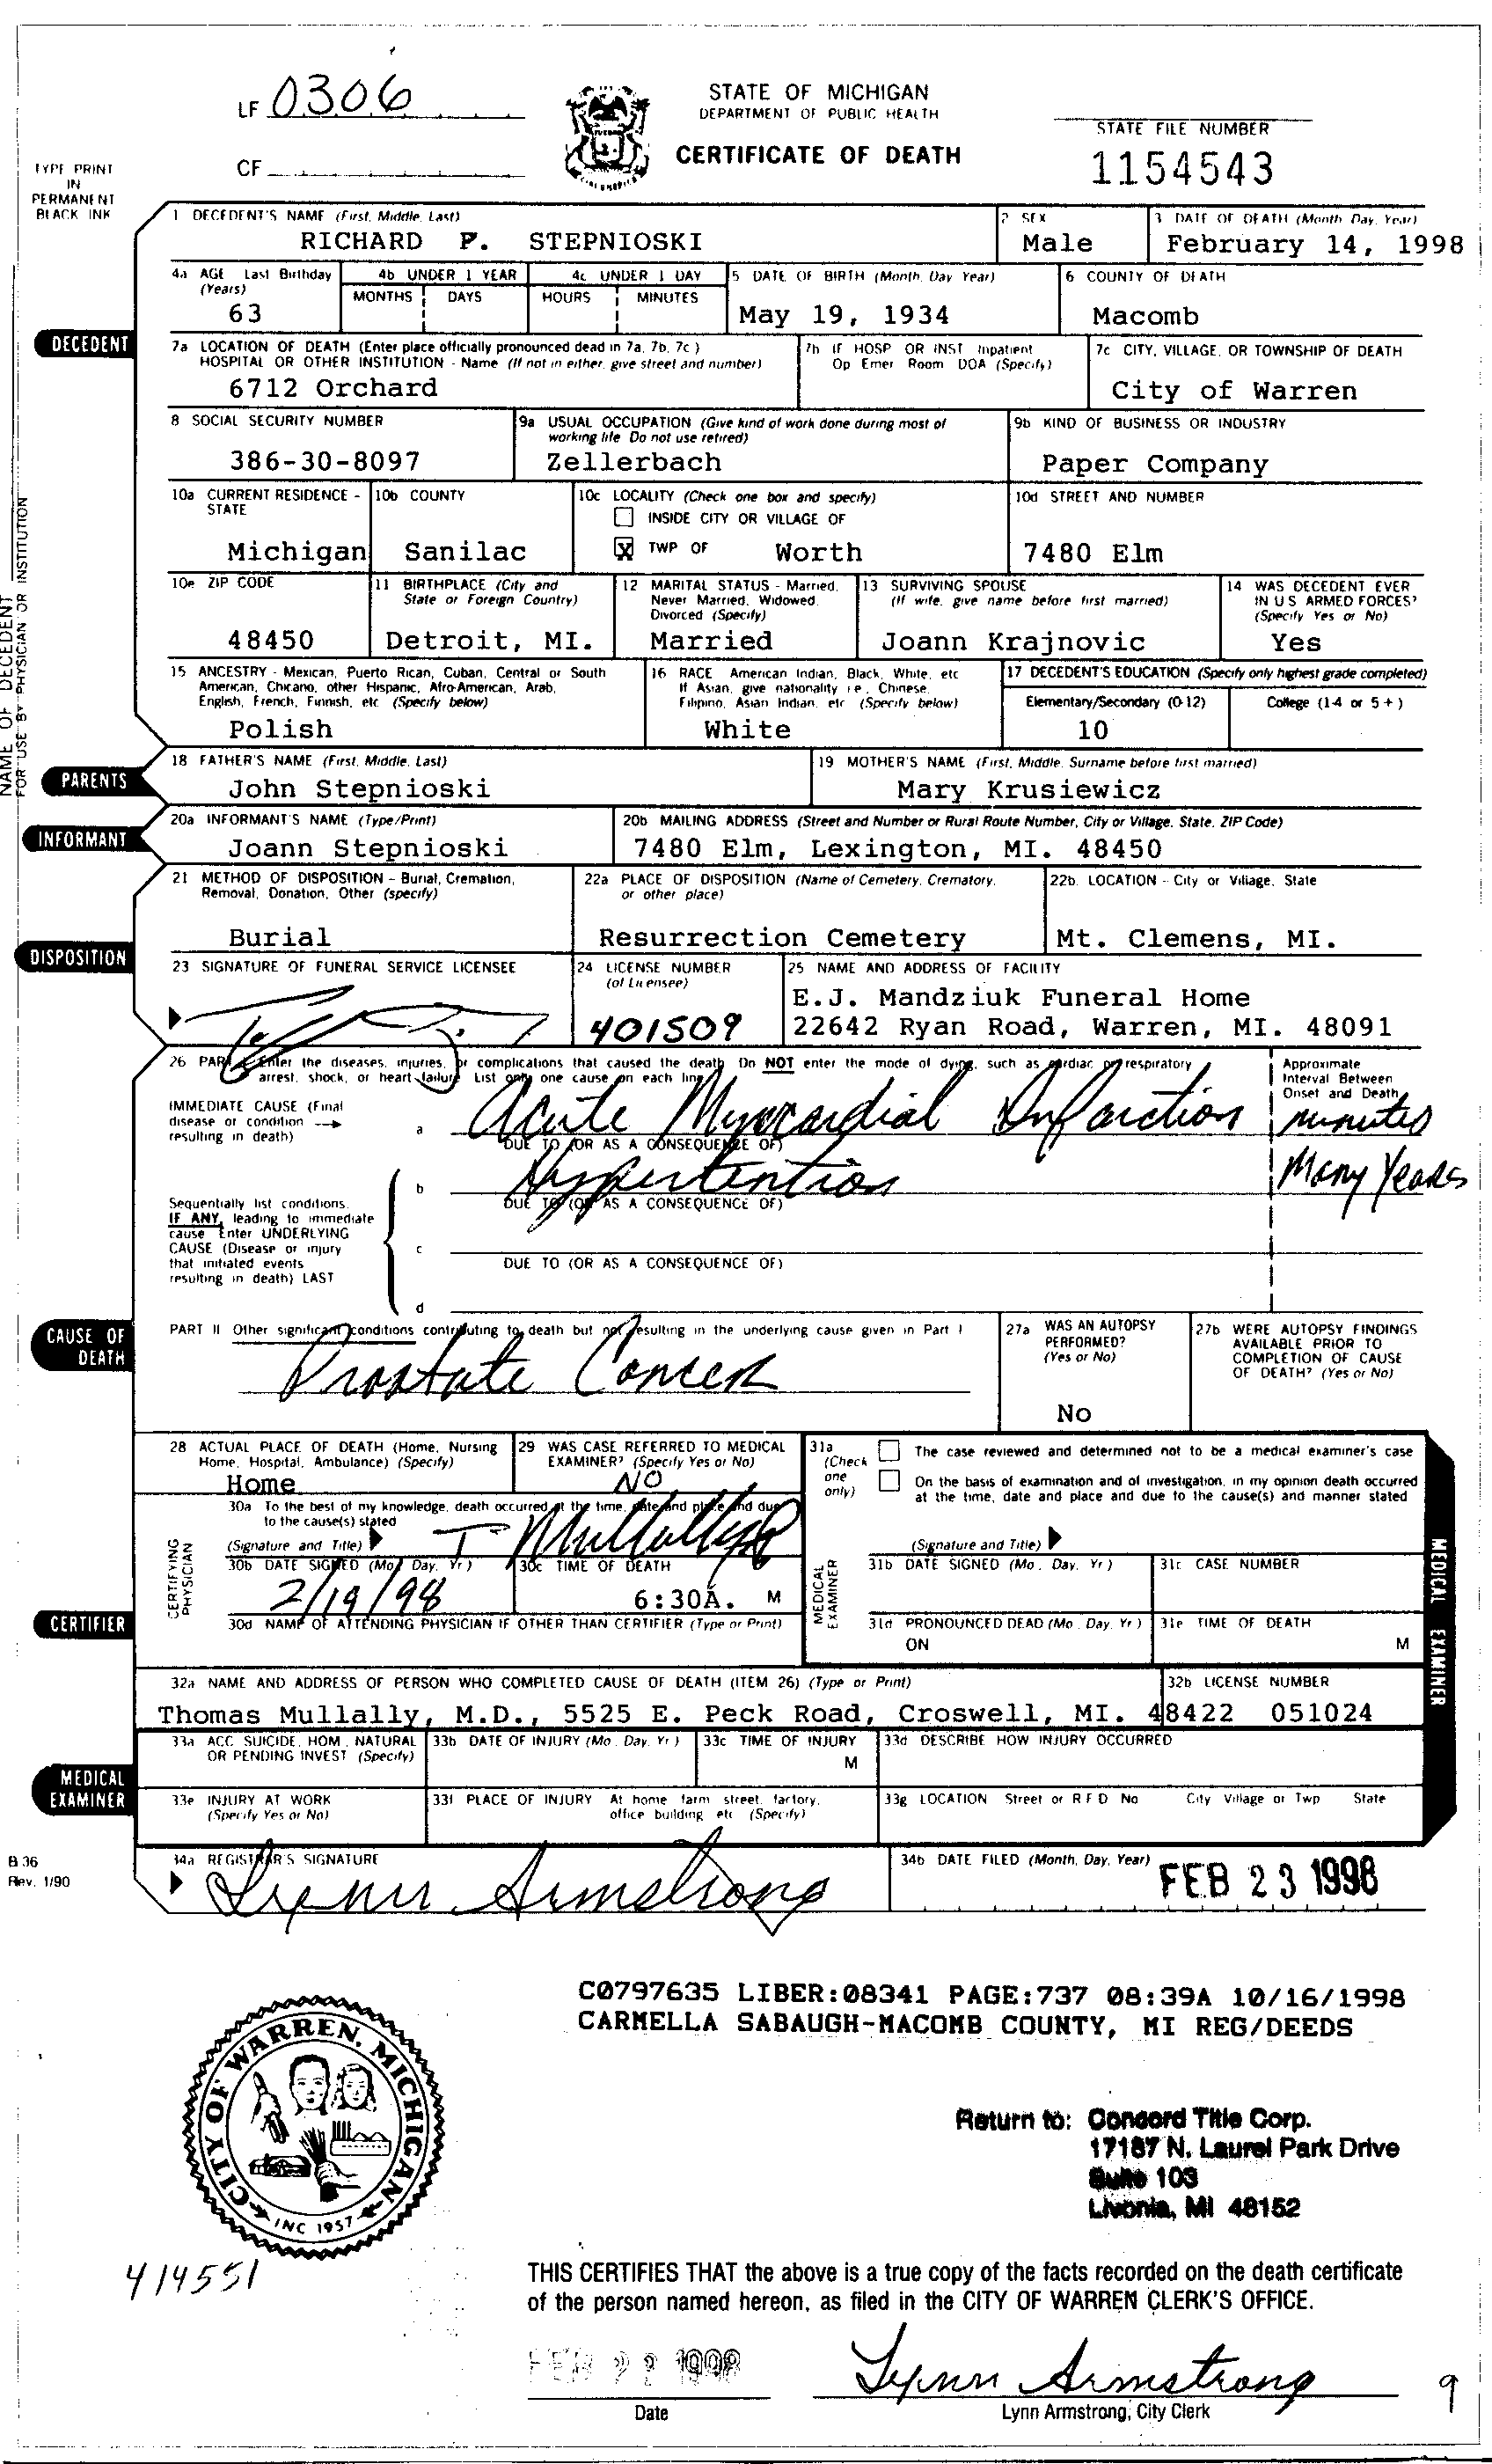 LF 0306
STATE OF MICHIGAN
DEPARTMENT OF PUBLIC HEALTH
CERTIFICATE OF DEATH
STATE FILE NUMBER
1154543
CF
TYPE PRINT
IN
PERMANENT
BLACK INK
NAME OF DECEDENT
FOR USE BY PHYSICIAN OR INSTITUTION
DECEDENT
1 DECEDENT'S NAME (First, Middle, Last)
RICHARD P. STEPNIOSKI
2 SEX
Male
3 DATE OF DEATH (Month, Day, Year)
February 14, 1998
4a AGE Last Birthday
(Years)
63
4b UNDER 1 YEAR
MONTHS DAYS
4c UNDER 1 DAY
HOURS MINUTES
5 DATE OF BIRTH (Month, Day, Year)
May 19, 1934
6 COUNTY OF DEATH
Macomb
7a LOCATION OF DEATH (Enter place officially pronounced dead in 7a, 7b, 7c)
HOSPITAL OR OTHER INSTITUTION - Name (If not in either, give street and number)
6712 Orchard
7b IF HOSP OR INST Inpatient
Op Emer Room DOA (Specify)
7c CITY, VILLAGE, OR TOWNSHIP OF DEATH
City of Warren
8 SOCIAL SECURITY NUMBER
386-30-8097
9a USUAL OCCUPATION (Give kind of work done during most of
working life Do not use retired)
Zellerbach
9b KIND OF BUSINESS OR INDUSTRY
Paper Company
10a CURRENT RESIDENCE -
STATE
Michigan
10b COUNTY
Sanilac
10c LOCALITY (Check one box and specify)
INSIDE CITY OR VILLAGE OF
X TWP OF Worth
10d STREET AND NUMBER
7480 Elm
10e ZIP CODE
48450
11 BIRTHPLACE (City and
State or Foreign Country)
Detroit, MI.
12 MARITAL STATUS - Married,
Never Married, Widowed,
Divorced (Specify)
Married
13 SURVIVING SPOUSE
(If wife, give name before first married)
Joann Krajnovic
14 WAS DECEDENT EVER
IN U S ARMED FORCES?
(Specify Yes or No)
Yes
15 ANCESTRY - Mexican, Puerto Rican, Cuban, Central or South
American, Chicano, other Hispanic, Afro-American, Arab,
English, French, Finnish, etc (Specify below)
Polish
16 RACE American Indian, Black, White, etc
If Asian, give nationality i e, Chinese,
Filipino, Asian Indian, etc (Specify below)
White
17 DECEDENT'S EDUCATION (Specify only highest grade completed)
Elementary/Secondary (0-12) College (1-4 or 5+)
10
PARENTS
18 FATHER'S NAME (First, Middle, Last)
John Stepnioski
19 MOTHER'S NAME (First, Middle, Surname before first married)
Mary Krusiewicz
INFORMANT
20a INFORMANT'S NAME (Type/Print)
Joann Stepnioski
20b MAILING ADDRESS (Street and Number or Rural Route Number, City or Village, State, ZIP Code)
7480 Elm, Lexington, MI. 48450
DISPOSITION
21 METHOD OF DISPOSITION - Burial, Cremation,
Removal, Donation, Other (specify)
Burial
22a PLACE OF DISPOSITION (Name of Cemetery, Crematory,
or other place)
Resurrection Cemetery
22b. LOCATION - City or Village, State
Mt. Clemens, MI.
23 SIGNATURE OF FUNERAL SERVICE LICENSEE
24 LICENSE NUMBER
(of Licensee)
401509
25 NAME AND ADDRESS OF FACILITY
E.J. Mandziuk Funeral Home
22642 Ryan Road, Warren, MI. 48091
CAUSE OF
DEATH
26 PART I Enter the diseases, injuries, or complications that caused the death Do NOT enter the mode of dying, such as cardiac or respiratory
arrest, shock, or heart failure List only one cause on each line
Approximate
Interval Between
Onset and Death
IMMEDIATE CAUSE (Final
disease or condition
resulting in death)
a Acute Myocardial Infarction minutes
DUE TO (OR AS A CONSEQUENCE OF)
b Hypertention Many Years
DUE TO (OR AS A CONSEQUENCE OF)
Sequentially list conditions,
IF ANY, leading to immediate
cause Enter UNDERLYING
CAUSE (Disease or injury
that initiated events
resulting in death) LAST
c
DUE TO (OR AS A CONSEQUENCE OF)
d
PART II Other significant conditions contributing to death but not resulting in the underlying cause given in Part I
Prostate Cancer
27a WAS AN AUTOPSY
PERFORMED?
(Yes or No)
No
27b WERE AUTOPSY FINDINGS
AVAILABLE PRIOR TO
COMPLETION OF CAUSE
OF DEATH? (Yes or No)
28 ACTUAL PLACE OF DEATH (Home, Nursing
Home, Hospital, Ambulance) (Specify)
Home
29 WAS CASE REFERRED TO MEDICAL
EXAMINER? (Specify Yes or No)
NO
CERTIFIER
CERTIFYING
PHYSICIAN
30a To the best of my knowledge, death occurred at the time, date and place and due
to the cause(s) stated
(Signature and Title) T Mullally
30b DATE SIGNED (Mo, Day, Yr)
2/19/98
30c TIME OF DEATH
6:30A. M
30d NAME OF ATTENDING PHYSICIAN IF OTHER THAN CERTIFIER (Type or Print)
MEDICAL
EXAMINER
31a
(Check
one
only)
The case reviewed and determined not to be a medical examiner's case
On the basis of examination and of investigation, in my opinion death occurred
at the time, date and place and due to the cause(s) and manner stated
(Signature and Title)
31b DATE SIGNED (Mo, Day, Yr)
31c CASE NUMBER
31d PRONOUNCED DEAD (Mo, Day, Yr)
ON
31e TIME OF DEATH
M
MEDICAL EXAMINER
32a NAME AND ADDRESS OF PERSON WHO COMPLETED CAUSE OF DEATH (ITEM 26) (Type or Print)
Thomas Mullally, M.D., 5525 E. Peck Road, Croswell, MI. 48422
32b LICENSE NUMBER
051024
MEDICAL
EXAMINER
33a ACC, SUICIDE, HOM, NATURAL
OR PENDING INVEST (Specify)
33b DATE OF INJURY (Mo, Day, Yr)
33c TIME OF INJURY
M
33d DESCRIBE HOW INJURY OCCURRED
33e INJURY AT WORK
(Specify Yes or No)
33f PLACE OF INJURY At home farm street, factory,
office building etc (Specify)
33g LOCATION Street or R F D No City Village or Twp State
B 36
Rev. 1/90
34a REGISTRAR'S SIGNATURE
Lynn Armstrong
34b DATE FILED (Month, Day, Year)
FEB 23 1998
C0797635 LIBER:08341 PAGE:737 08:39A 10/16/1998
CARMELLA SABAUGH-MACOMB COUNTY, MI REG/DEEDS
CITY OF WARREN, MICHIGAN
INC 1957
Return to: Concord Title Corp.
17187 N. Laurel Park Drive
Suite 103
Livonia, MI 48152
414551
THIS CERTIFIES THAT the above is a true copy of the facts recorded on the death certificate
of the person named hereon, as filed in the CITY OF WARREN CLERK'S OFFICE.
FEB 1998
Date
Lynn Armstrong
Lynn Armstrong, City Clerk
9